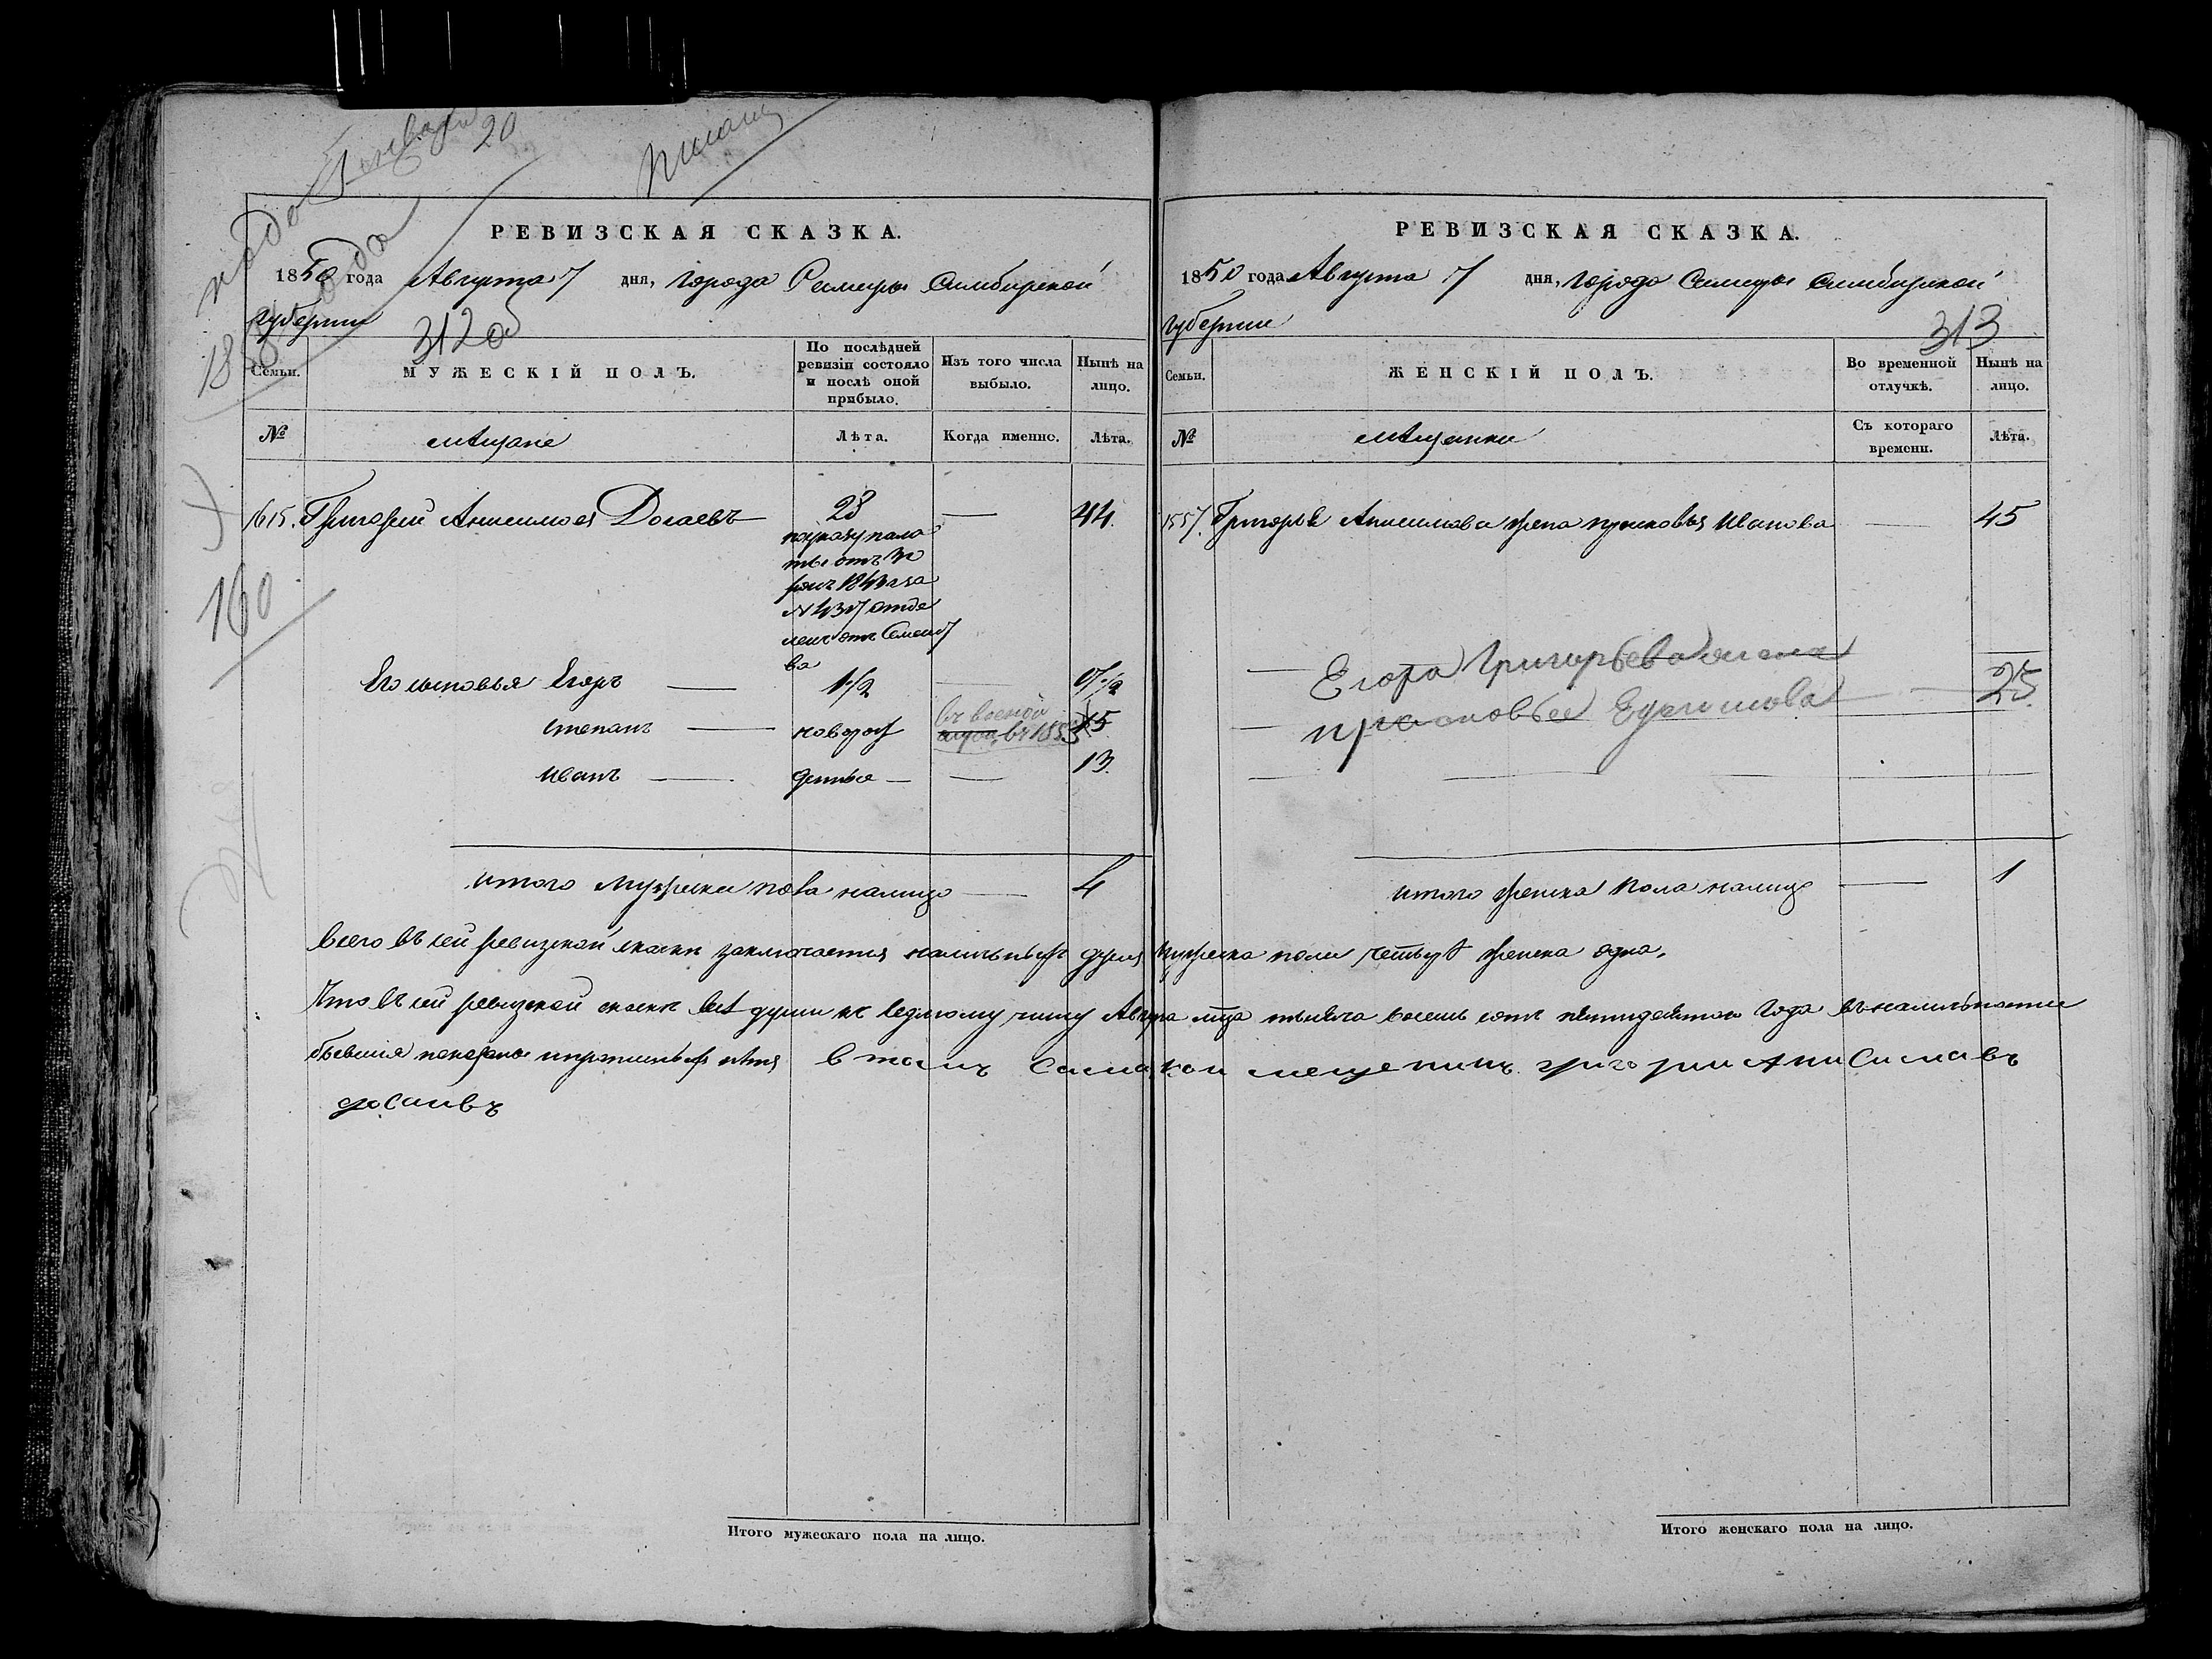 Января 20
подо
1858 года
160
РЕВИЗСКАЯ СКАЗКА.
1850 года Августа 7 дня, города Самары Симбирской
губернии
312 об
Семьи.
МУЖЕСКІЙ ПОЛЪ.
По послѣдней ревизіи состояло и послѣ оной прибыло.
Изъ того числа выбыло.
Нынѣ на лицо.
№
мѣщане
Лѣта.
Когда именно.
Лѣта.
1615. Григорий Анисимовъ Досаевъ 23 — 44.
по указу пала
ты отъ 31
1843 за
N 4307 отде
ленъ отъ Семей
ва
Его сыновья Егоръ — 1/2 — 17 1/2
Степанъ — новорож 15
въ военой
въ 1853
Иванъ — — 13.
итого мужеска пола налицо — 4
РЕВИЗСКАЯ СКАЗКА.
1850 года Августа 7 дня, города Самары Симбирской
губернии
313
Семьи.
ЖЕНСКІЙ ПОЛЪ.
Во временной отлучкѣ.
Нынѣ на лицо.
№
мѣщанки
Съ котораго времени.
Лѣта.
1557. Григорья Анисимова жена Прасковья Иванова — 45
— Егора Григорьева жена
— Прасковья Ефимова — 25
итого женска пола налицо — 1
Всего въ сей ревизской сказки заключается наличныхъ душъ мужеска пола четыре женска одна.
Что въ сей ревизской сказки всѣ души къ седмому числу Августа мца тысяча восемь сотъ пятидесятого года въ наличности
бывшия показаны и прописныхъ нѣтъ в томъ Самарскои мещенинъ григории Анисимавъ
досаивъ
Итого мужескаго пола на лицо.
Итого женскаго пола на лицо.